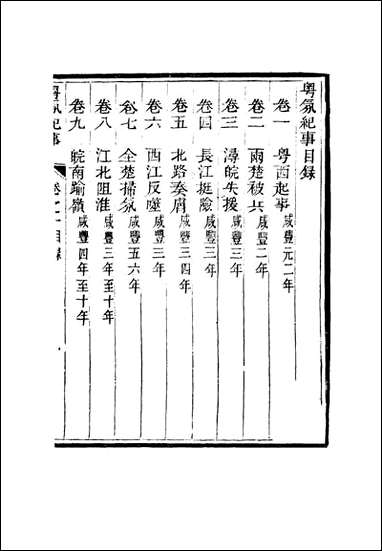 粵氛紀事目錄
卷一 粵西起事咸豐元二年
卷二 兩楚被兵咸豐二年
卷三 潯皖失援咸豐三年
卷四 長江挺險咸豐三年
卷五 北路奏膚咸豐三四年
卷六 西江反噬咸豐三年
卷七 全楚掃氛咸豐五六年
卷八 江北阻淮咸豐三年至十年
卷九 皖南踰嶺咸豐四年至十年
粵氛紀事 卷之一目錄